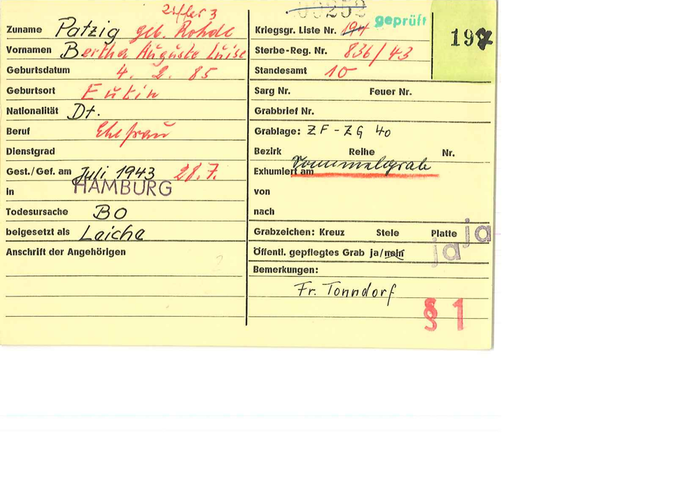 Ziffer 3
Zuname Patzig geb. Rohde
Vornamen Bertha Auguste Luise
Geburtsdatum 4. 2. 85
Geburtsort Eutin
Nationalität Dt.
Beruf Ehefrau
Dienstgrad
Gest./Gef. am Juli 1943 28.7.
in HAMBURG
Todesursache BO
beigesetzt als Leiche
Anschrift der Angehörigen
geprüft
Kriegsgr. Liste Nr.
197
Sterbe-Reg. Nr. 836/43
Standesamt 10
Sarg Nr. Feuer Nr.
Grabbrief Nr.
Grablage: ZF-ZG 40
Bezirk Reihe Nr.
Sammelgrab
Exhumiert am
von
nach
Grabzeichen: Kreuz Stele Platte ja
Öffentl. gepflegtes Grab ja/nein ja
Bemerkungen:
Fr. Tonndorf
§ 1